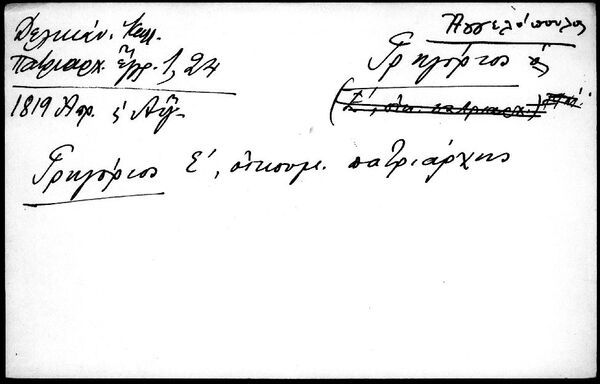 Δελικάν. Καλ.
Πατριαρχ. ἔγγρ. 1, 24
1819 Απρ.
Ἀγγελόπουλος
Γρηγόριος
οἰκ. πατριαρχ.
Γρηγόριος Ε΄, οἰκουμ. πατριάρχης